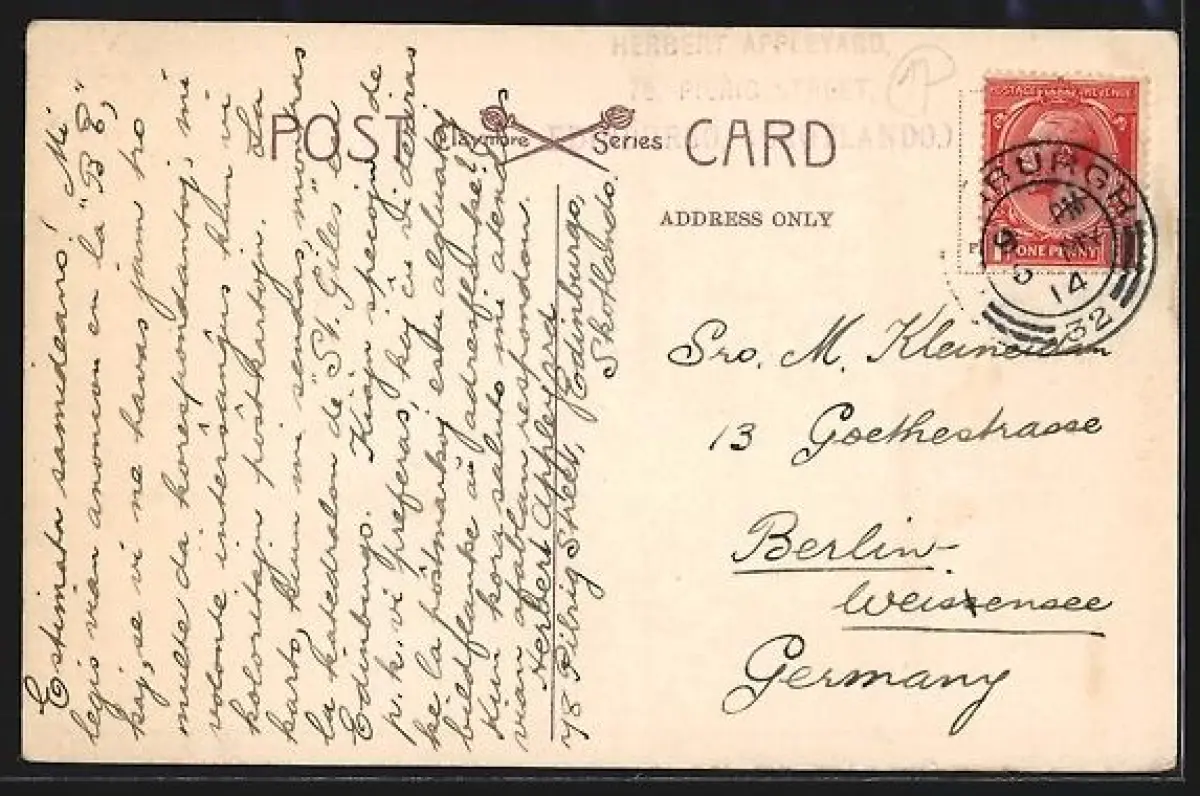 HERBERT APPLEYARD,
78, PILRIG STREET,
POST Claymore Series CARD
ADDRESS ONLY
POSTAGE REVENUE
ONE PENNY
BURGH
PM
5 MY
14
32
Estimata samideano! Mi
legis vian anoncon en la "B E",
kaj, se vi ne havas jam tro
multe da korespondantoj, mi
volonte interŝanĝus kun vi
koloritajn poŝtkartojn. La
karto, kiun mi sendas, montras
la katedralon de "St. Giles" ĉe
Edinburgo. Kiajn specojn de
p.k. vi preferas, kaj ĉu vi deziras
ke la poŝtmarkoj estu algluataj
bildflanke aŭ adresflanke?
Kun kora saluto mi atendas
vian afablan respondon.
Herbert Appleyard
78 Pilrig Street, Edinburgo,
Skotlando.
Sro. M. Kleineidam
13 Goethestrasse
Berlin-
Weissensee
Germany